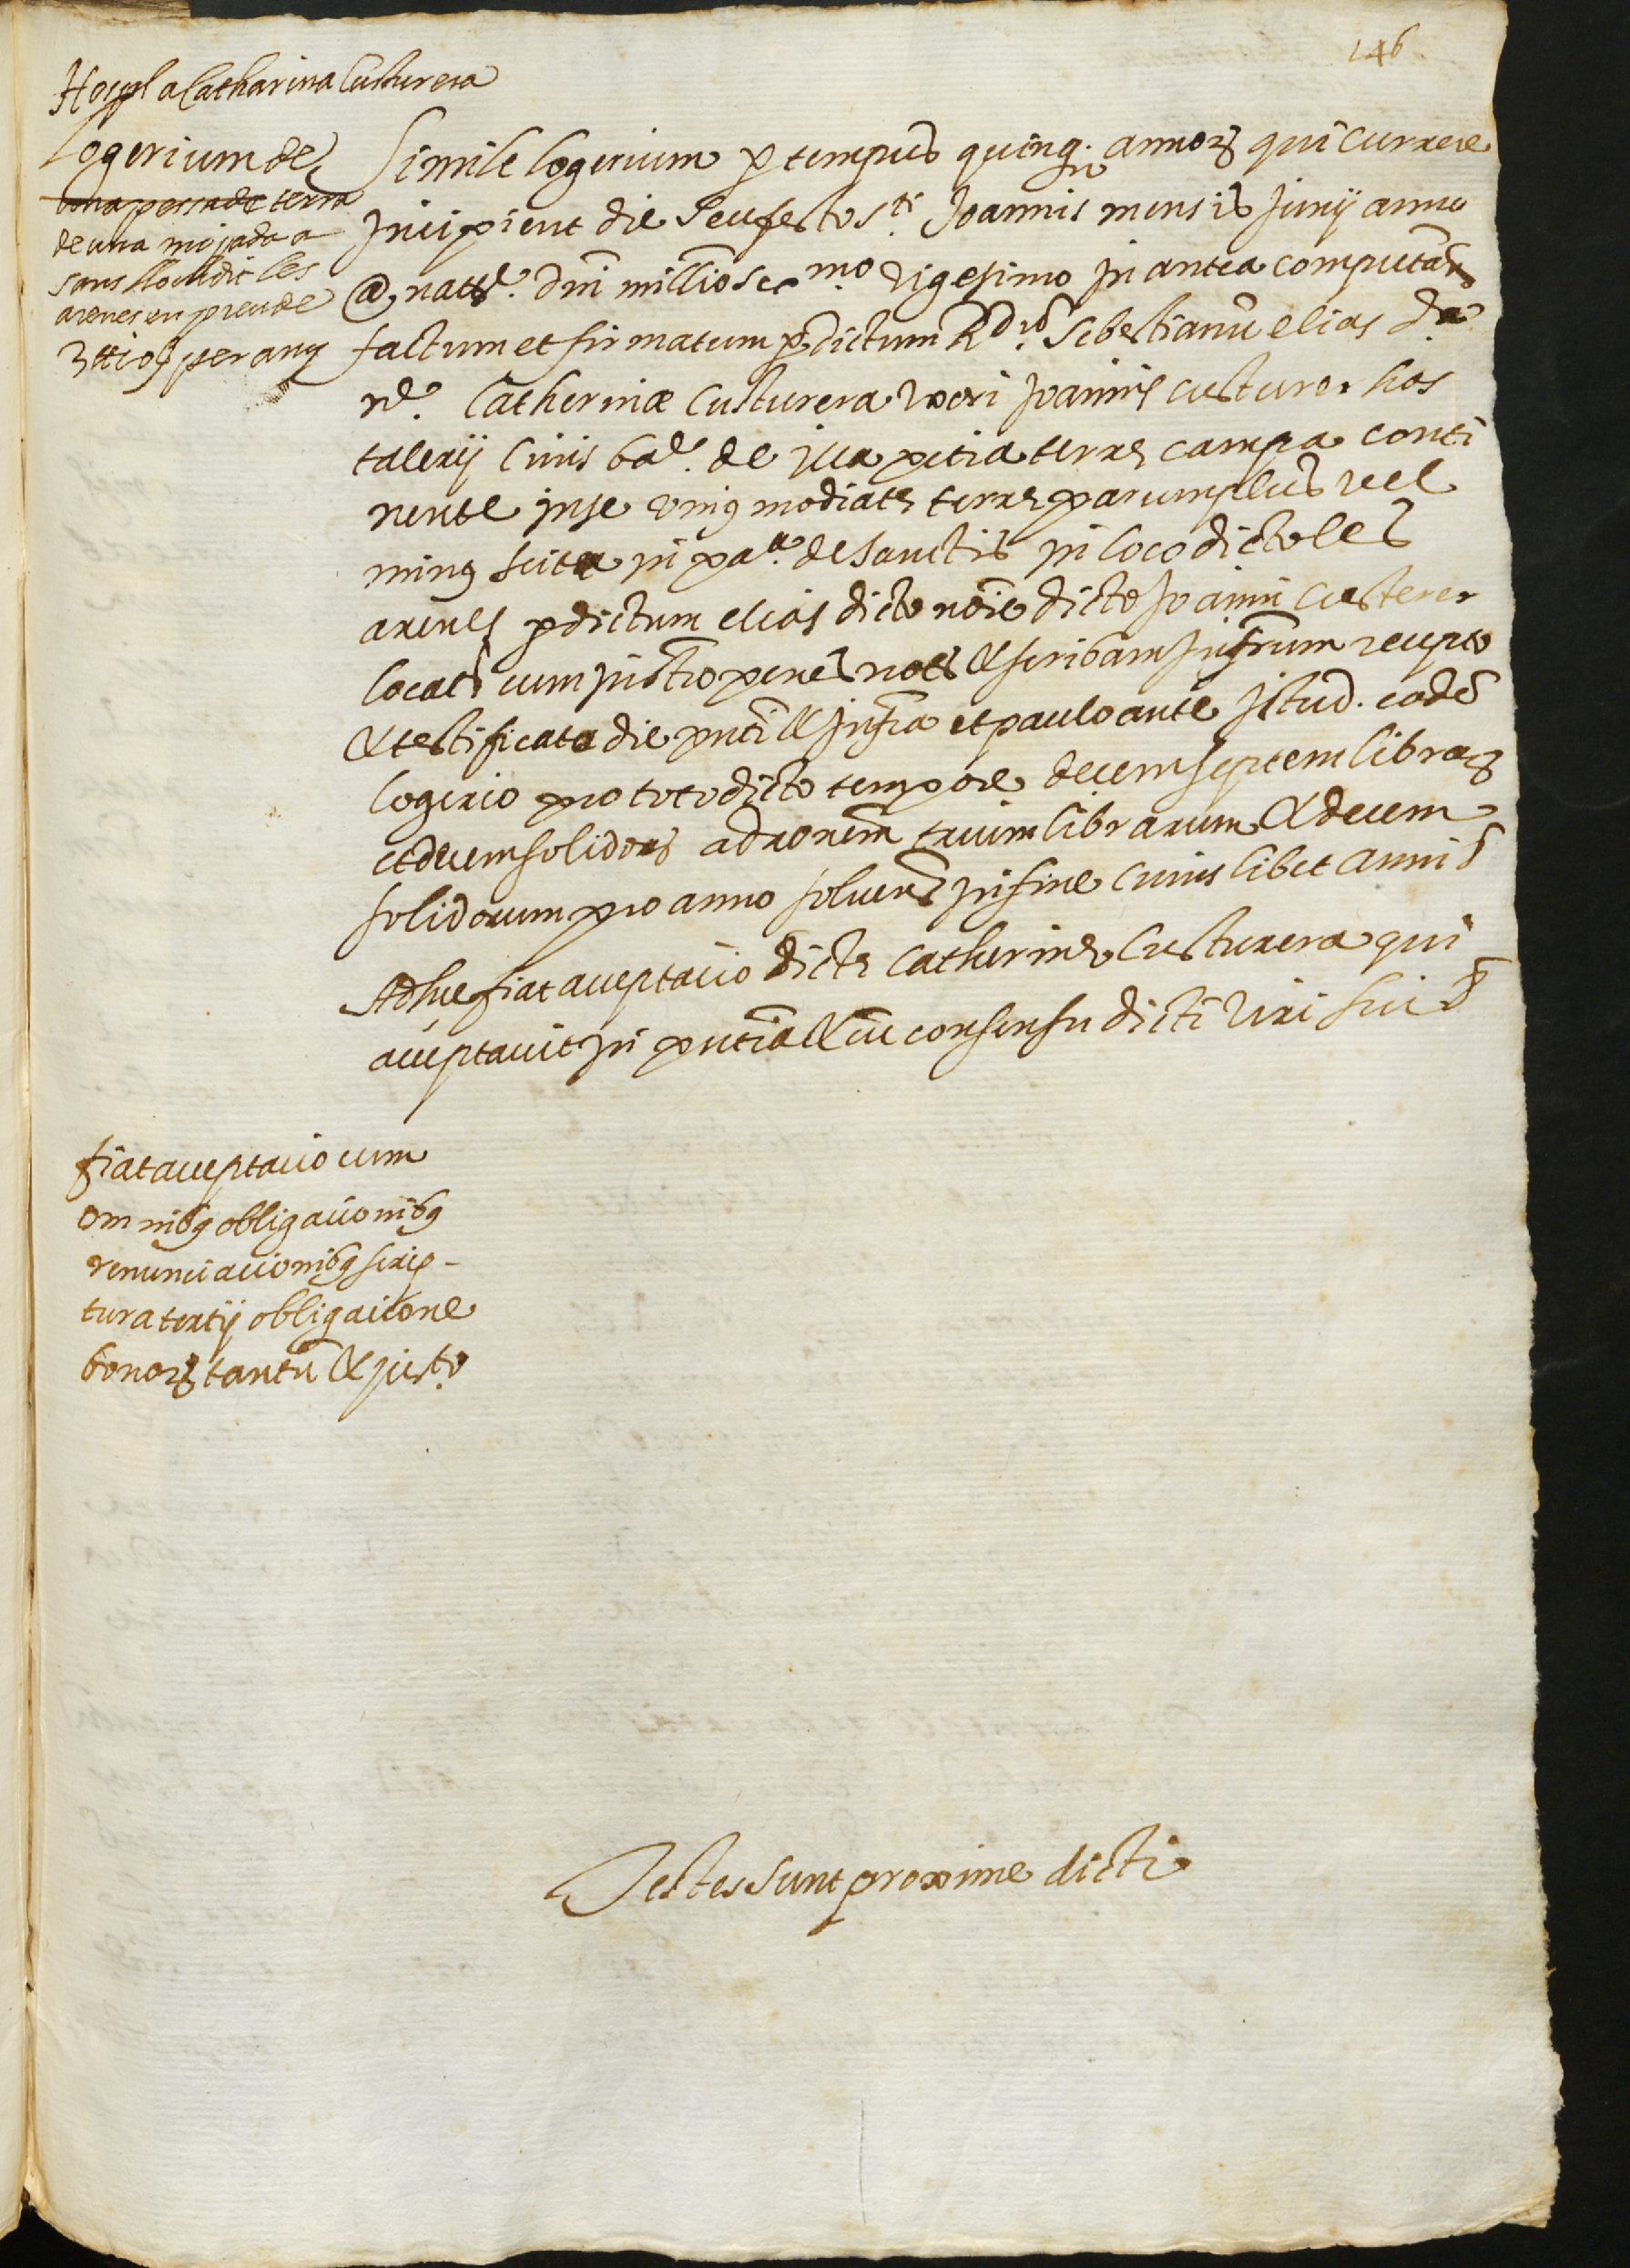 146
Hospl a Catharina Custurera
Logerium de
una pessa de terra
de una mojada a
sans lloch dit les
arenes en preu de
3 ll 10 s per any
Simile logerium p tempus quinq. annoꝝ qui currere
Incipient die seu festo S.ti Joannis mensis Junij anno
@ natte. Dni millio sex.mo vigesimo in antea computan
factum et firmatum p dictum Rd.um Sebestianū elias da
nd.e Catherinæ Custurera uxori Joannis custurer hos
talerij Civis bae. de illa petia terre campa conti
nente in se unius modiate terre parum plus vel
minus scita in paa. de Sanctis in loco dicto les
arenes p dictum elias dicto noīe dicto Joanni Custerer
locats cum instro penes nots & scribam infrum recepto
& testificato die pnti & infra et paulo ante istud. eodē
logerio pro toto dicto tempore decem septem libraꝝ
et decem solidoꝝ ad rōnem trium librarum & decem
solidorum pro anno solvens in fine cuius libet anni &
Adhuc fiat acceptacio dicte Catherine Custurera qui
acceptavit in pntia & cū consensu dicti viri sui &
fiat acceptacio cum
omnibꝯ obligacionibꝯ
renunciacionibꝯ scrip-
tura tertij obligacione
bonoꝝ tantū & jur.to
Testes sunt proxime dicti